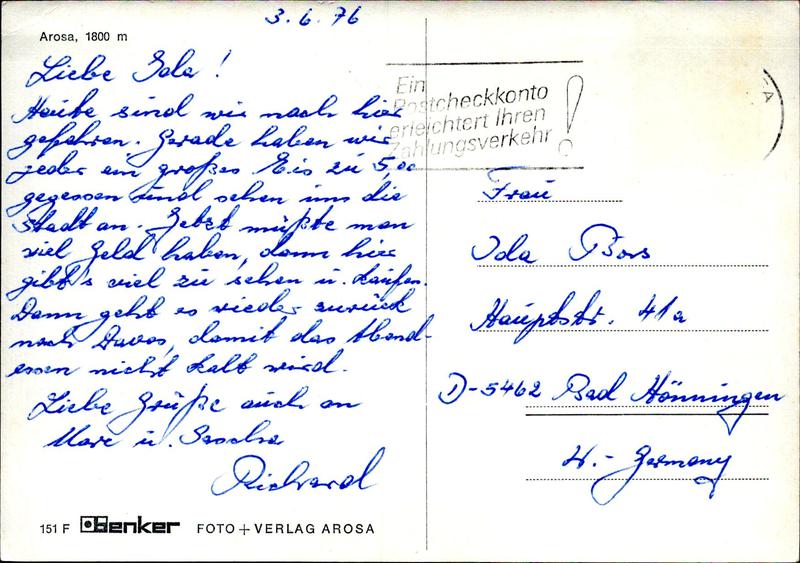 3.6.76
Arosa, 1800 m
Liebe Ida!
Heute sind wir nach hier
gefahren. Gerade haben wir
jeder ein großes Eis zu 5,00
gegessen und sehen uns die
Stadt an. Jetzt müßte man
viel Geld haben, denn hier
gibt's viel zu sehen u. kaufen.
Dann geht es wieder zurück
nach Davos, damit das Abend-
essen nicht kalt wird.
Liebe Grüße auch an
u. Sascha
Richard
151 F Benker FOTO + VERLAG AROSA
Ein
Postcheckkonto
erleichtert Ihren
Zahlungsverkehr!
Frau
Ida Bors
Hauptstr. 41a
D-5462 Bad Hönningen
W.-Germany